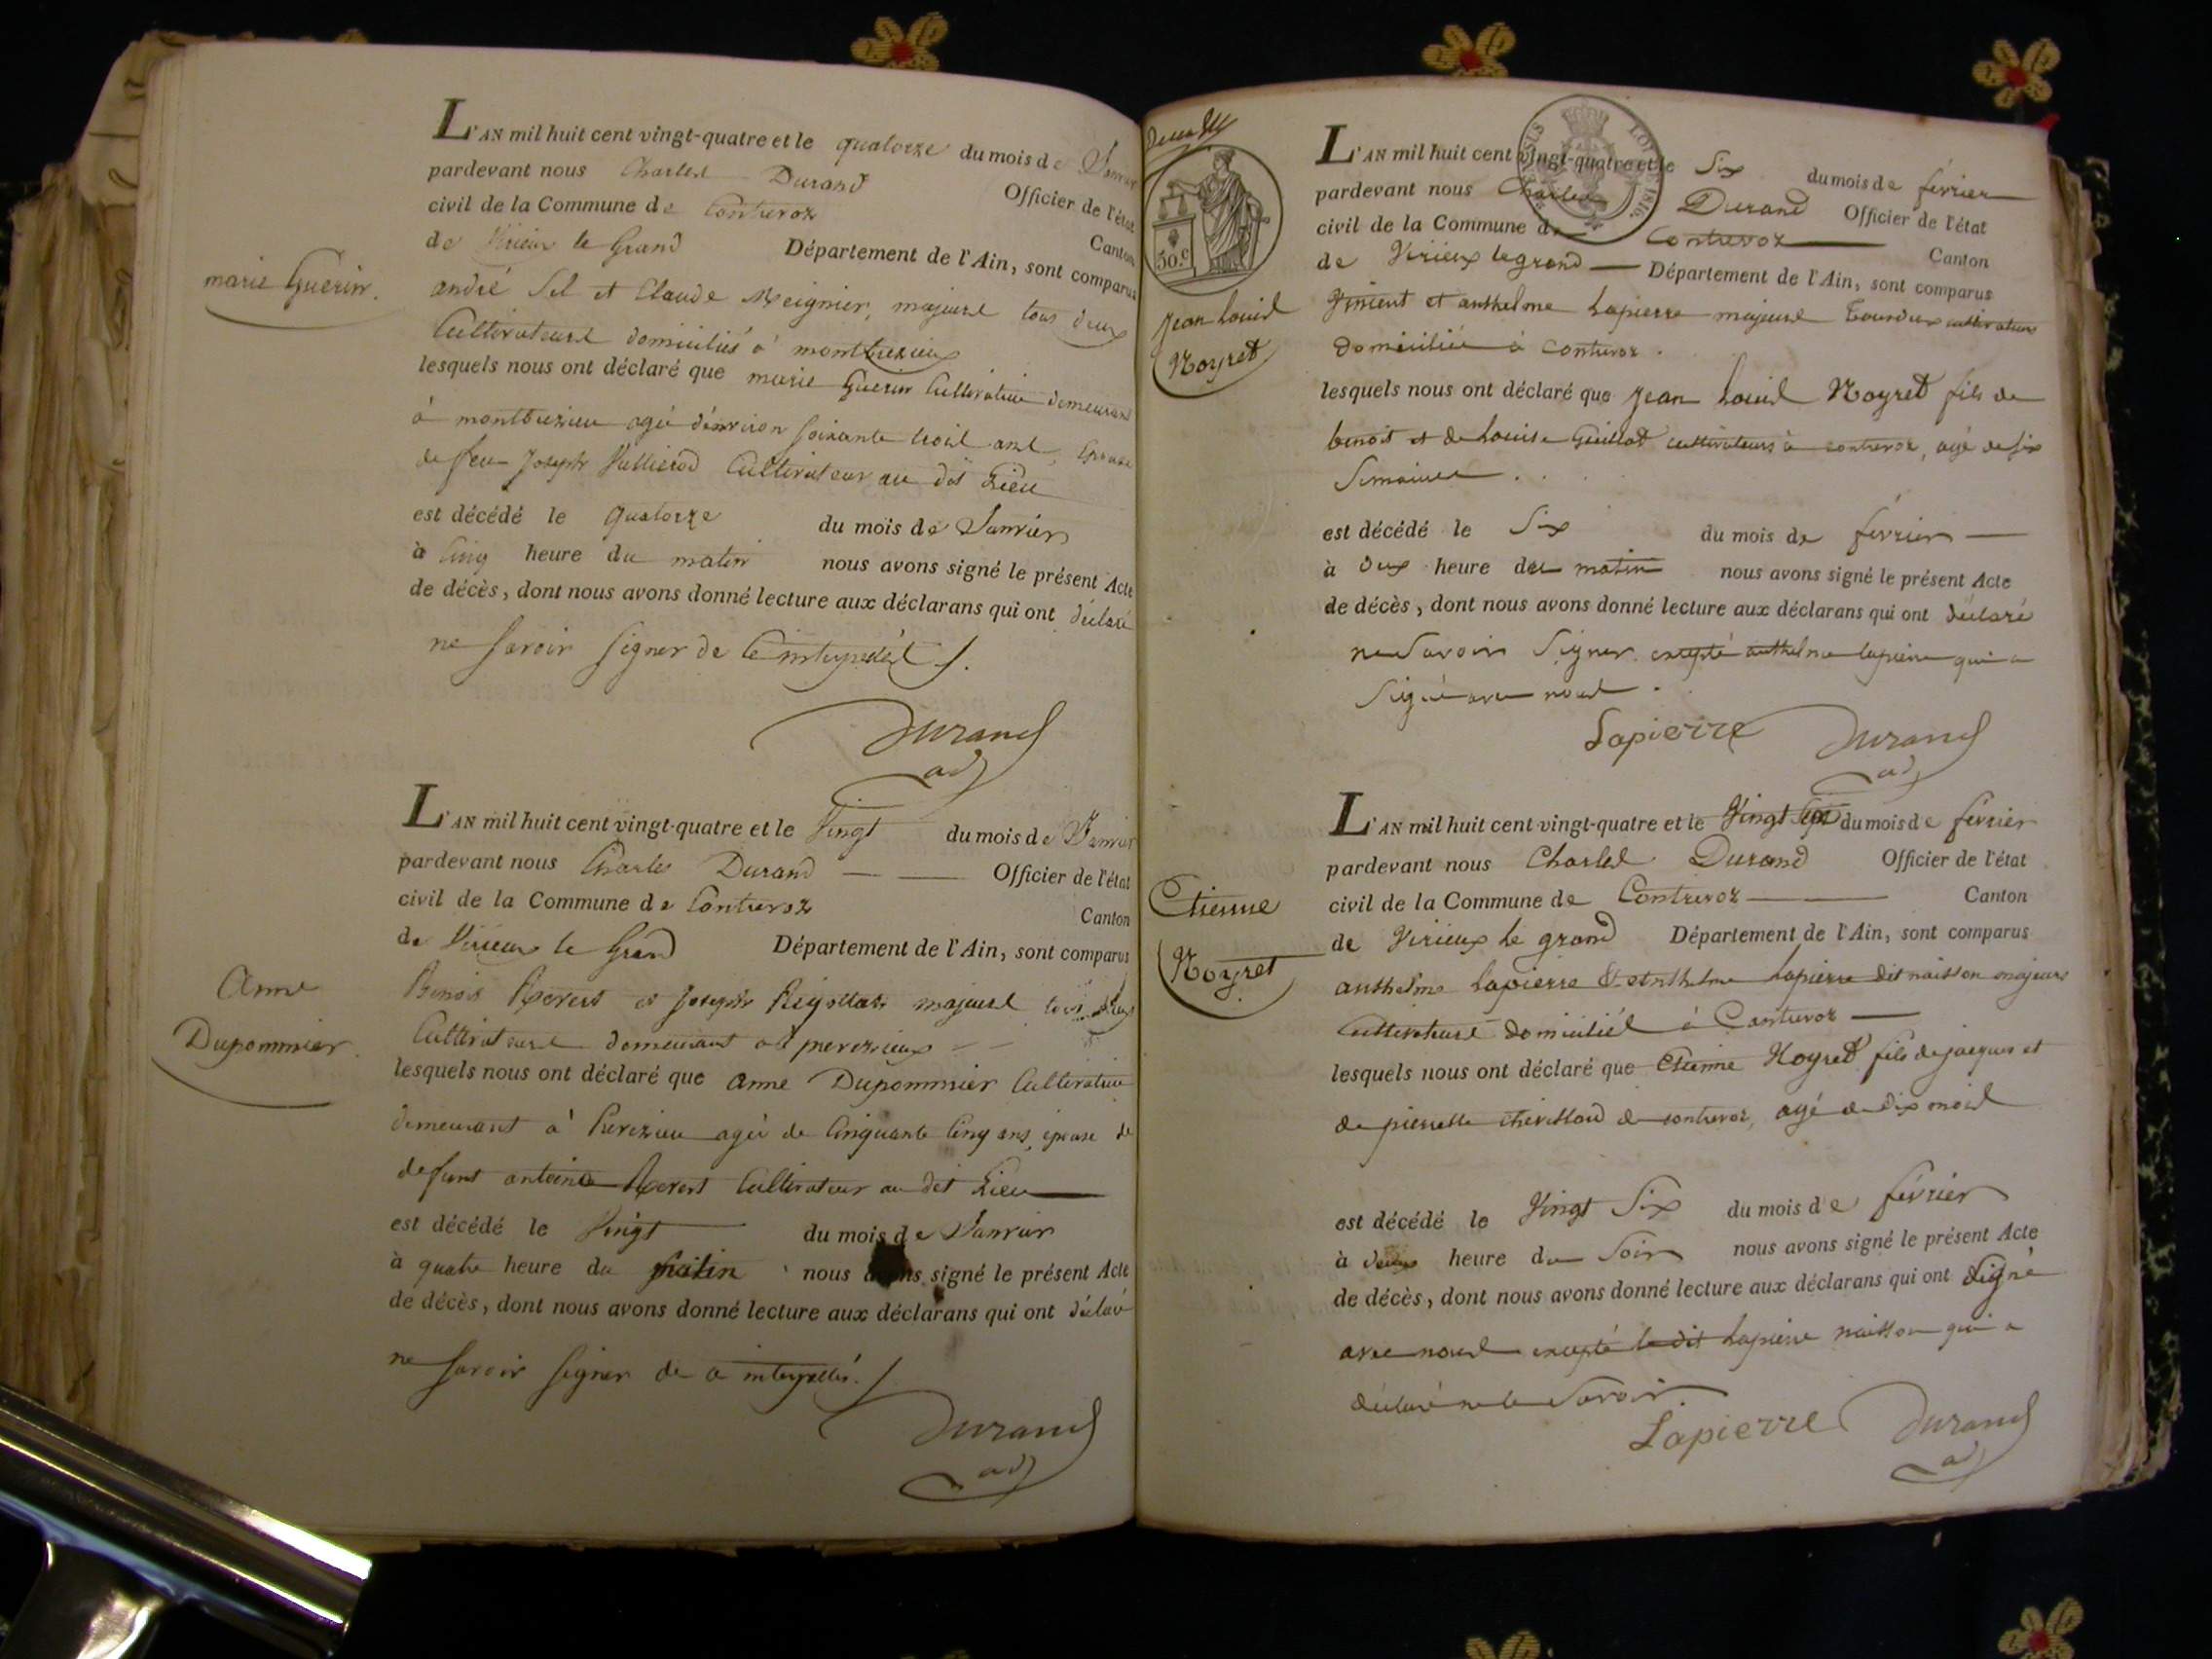 L'AN mil huit cent vingt-quatre et le quatorze du mois de Janvier
pardevant nous Charles Durand Officier de l'état
civil de la Commune de Contrevoz Canton
de Virieu le Grand Département de l'Ain, sont comparus
andré Sel et Claude majeurs tous deux
Cultivateurs domiciliés à
marie Guerin
lesquels nous ont déclaré que marie Guerin Cultivatrice demeurant
à agée d'environ soixante trois ans, Epouse
de feu Joseph Cultivateur au dit Lieu
est décédé le quatorze du mois de Janvier
à Cinq heure du matin nous avons signé le présent Acte
de décès, dont nous avons donné lecture aux déclarans qui ont déclaré
ne savoir signer de Ce
Durand
adj
L'AN mil huit cent vingt-quatre et le Vingt du mois de Janvier
pardevant nous Charles Durand Officier de l'état
civil de la Commune de Contrevoz Canton
de Virieu le Grand Département de l'Ain, sont comparus
Benoit et Joseph majeurs tous deux
Cultivateurs demeurant à
Anne
Dupommier
lesquels nous ont déclaré que anne Dupommier Cultivatrice
demeurant à agée de Cinquante Cinq ans, epouse de
defunt antoine Cultivateur au dit Lieu
est décédé le Vingt du mois de Janvier
à quatre heure du matin nous avons signé le présent Acte
de décès, dont nous avons donné lecture aux déclarans qui ont déclaré
ne savoir signer de ce
Durand
adj
50.c
LOI 1816.
L'AN mil huit cent vingt-quatre et le Six du mois de février
pardevant nous Charles Durand Officier de l'état
civil de la Commune de Contrevoz Canton
de Virieux legrand Département de l'Ain, sont comparus
Vincent et anthelme Lapierre majeurs Tous deux cultivateurs
domiciliés à Contrevoz.
Jean Louis
Noyret
lesquels nous ont déclaré que Jean Louis Noyret fils de
benoit et de Louise Guillot cultivateurs à contrevoz, agé de six
Semaines.
est décédé le Six du mois de février
à deux heure du matin nous avons signé le présent Acte
de décès, dont nous avons donné lecture aux déclarans qui ont déclaré
ne Savoir Signer excepté anthelme lapierre qui a
Signé avec nous.
Lapierre Durand
adj
L'AN mil huit cent vingt-quatre et le Vingt Sept du mois de février
pardevant nous Charles Durand Officier de l'état
civil de la Commune de Contrevoz Canton
de Virieux le grand Département de l'Ain, sont comparus
anthelme Lapierre & anthelme Lapierre dit naisson majeurs
Cultivateurs domiciliés à Contrevoz
Etienne
Noyret
lesquels nous ont déclaré que Etienne Noyret fils de jacques et
de pierrette de contrevoz, agé de dix mois
est décédé le Vingt Six du mois de février
à deux heure du Soir nous avons signé le présent Acte
de décès, dont nous avons donné lecture aux déclarans qui ont Signé
avec nous excepté le dit Lapierre naisson qui a
déclaré ne le Savoir
Lapierre Durand
adj